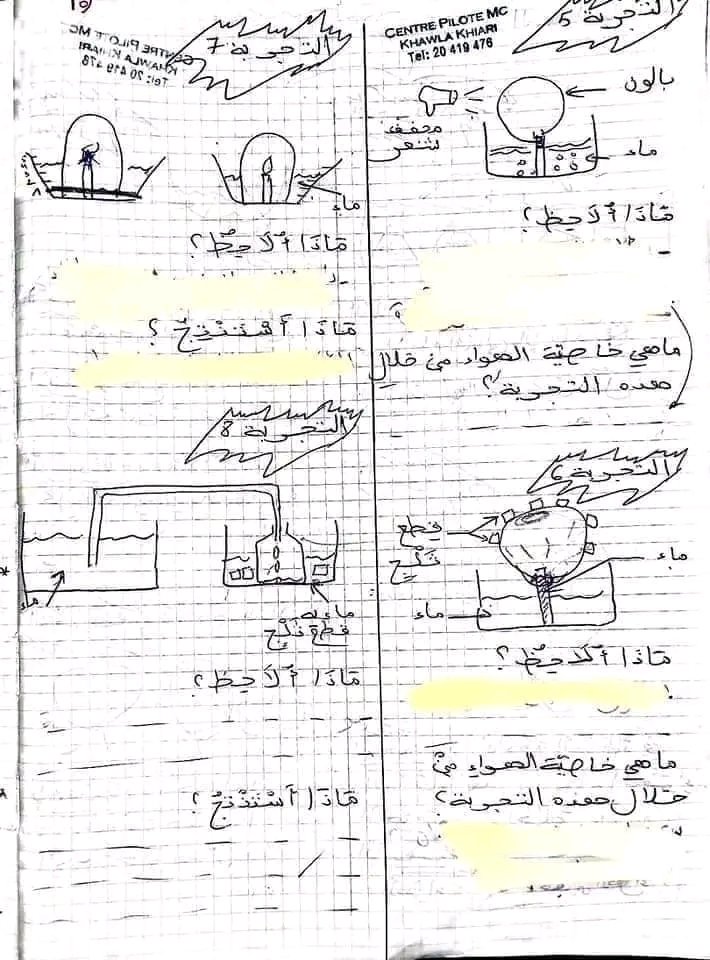 التجربة 5
CENTRE PILOTE MC
KHAWLA KHIARI
Tel: 20 419 476
بالون
مجفف
شعر
ماء
مَاذَا أُلَاحِظُ؟
ماهي خاصيّة الهواء من خلال
هذه التجربة؟
التجربة 6
قطع
ثَلْجٍ
ماء
ماء
مَاذَا أُلَاحِظُ؟
ماهي خاصيّة الهواءِ مِنْ
خلال هذه التجربة؟
التجربة 7
CENTRE PILOTE MC
KHAWLA KHIARI
Tel: 20 419 476
ماء
مَاذَا أُلَاحِظُ؟
مَاذَا أَسْتَنْتِجُ؟
التجربة 8
ماء
ماء به
قطع ثلج
مَاذَا أُلَاحِظُ؟
مَاذَا أَسْتَنْتِجُ؟